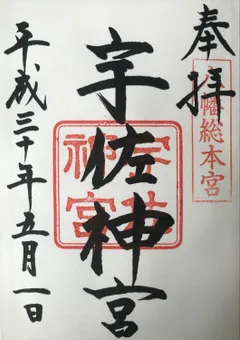 奉拝
八幡総本宮
宇佐神宮
宇佐神宮
平成三十年五月一日